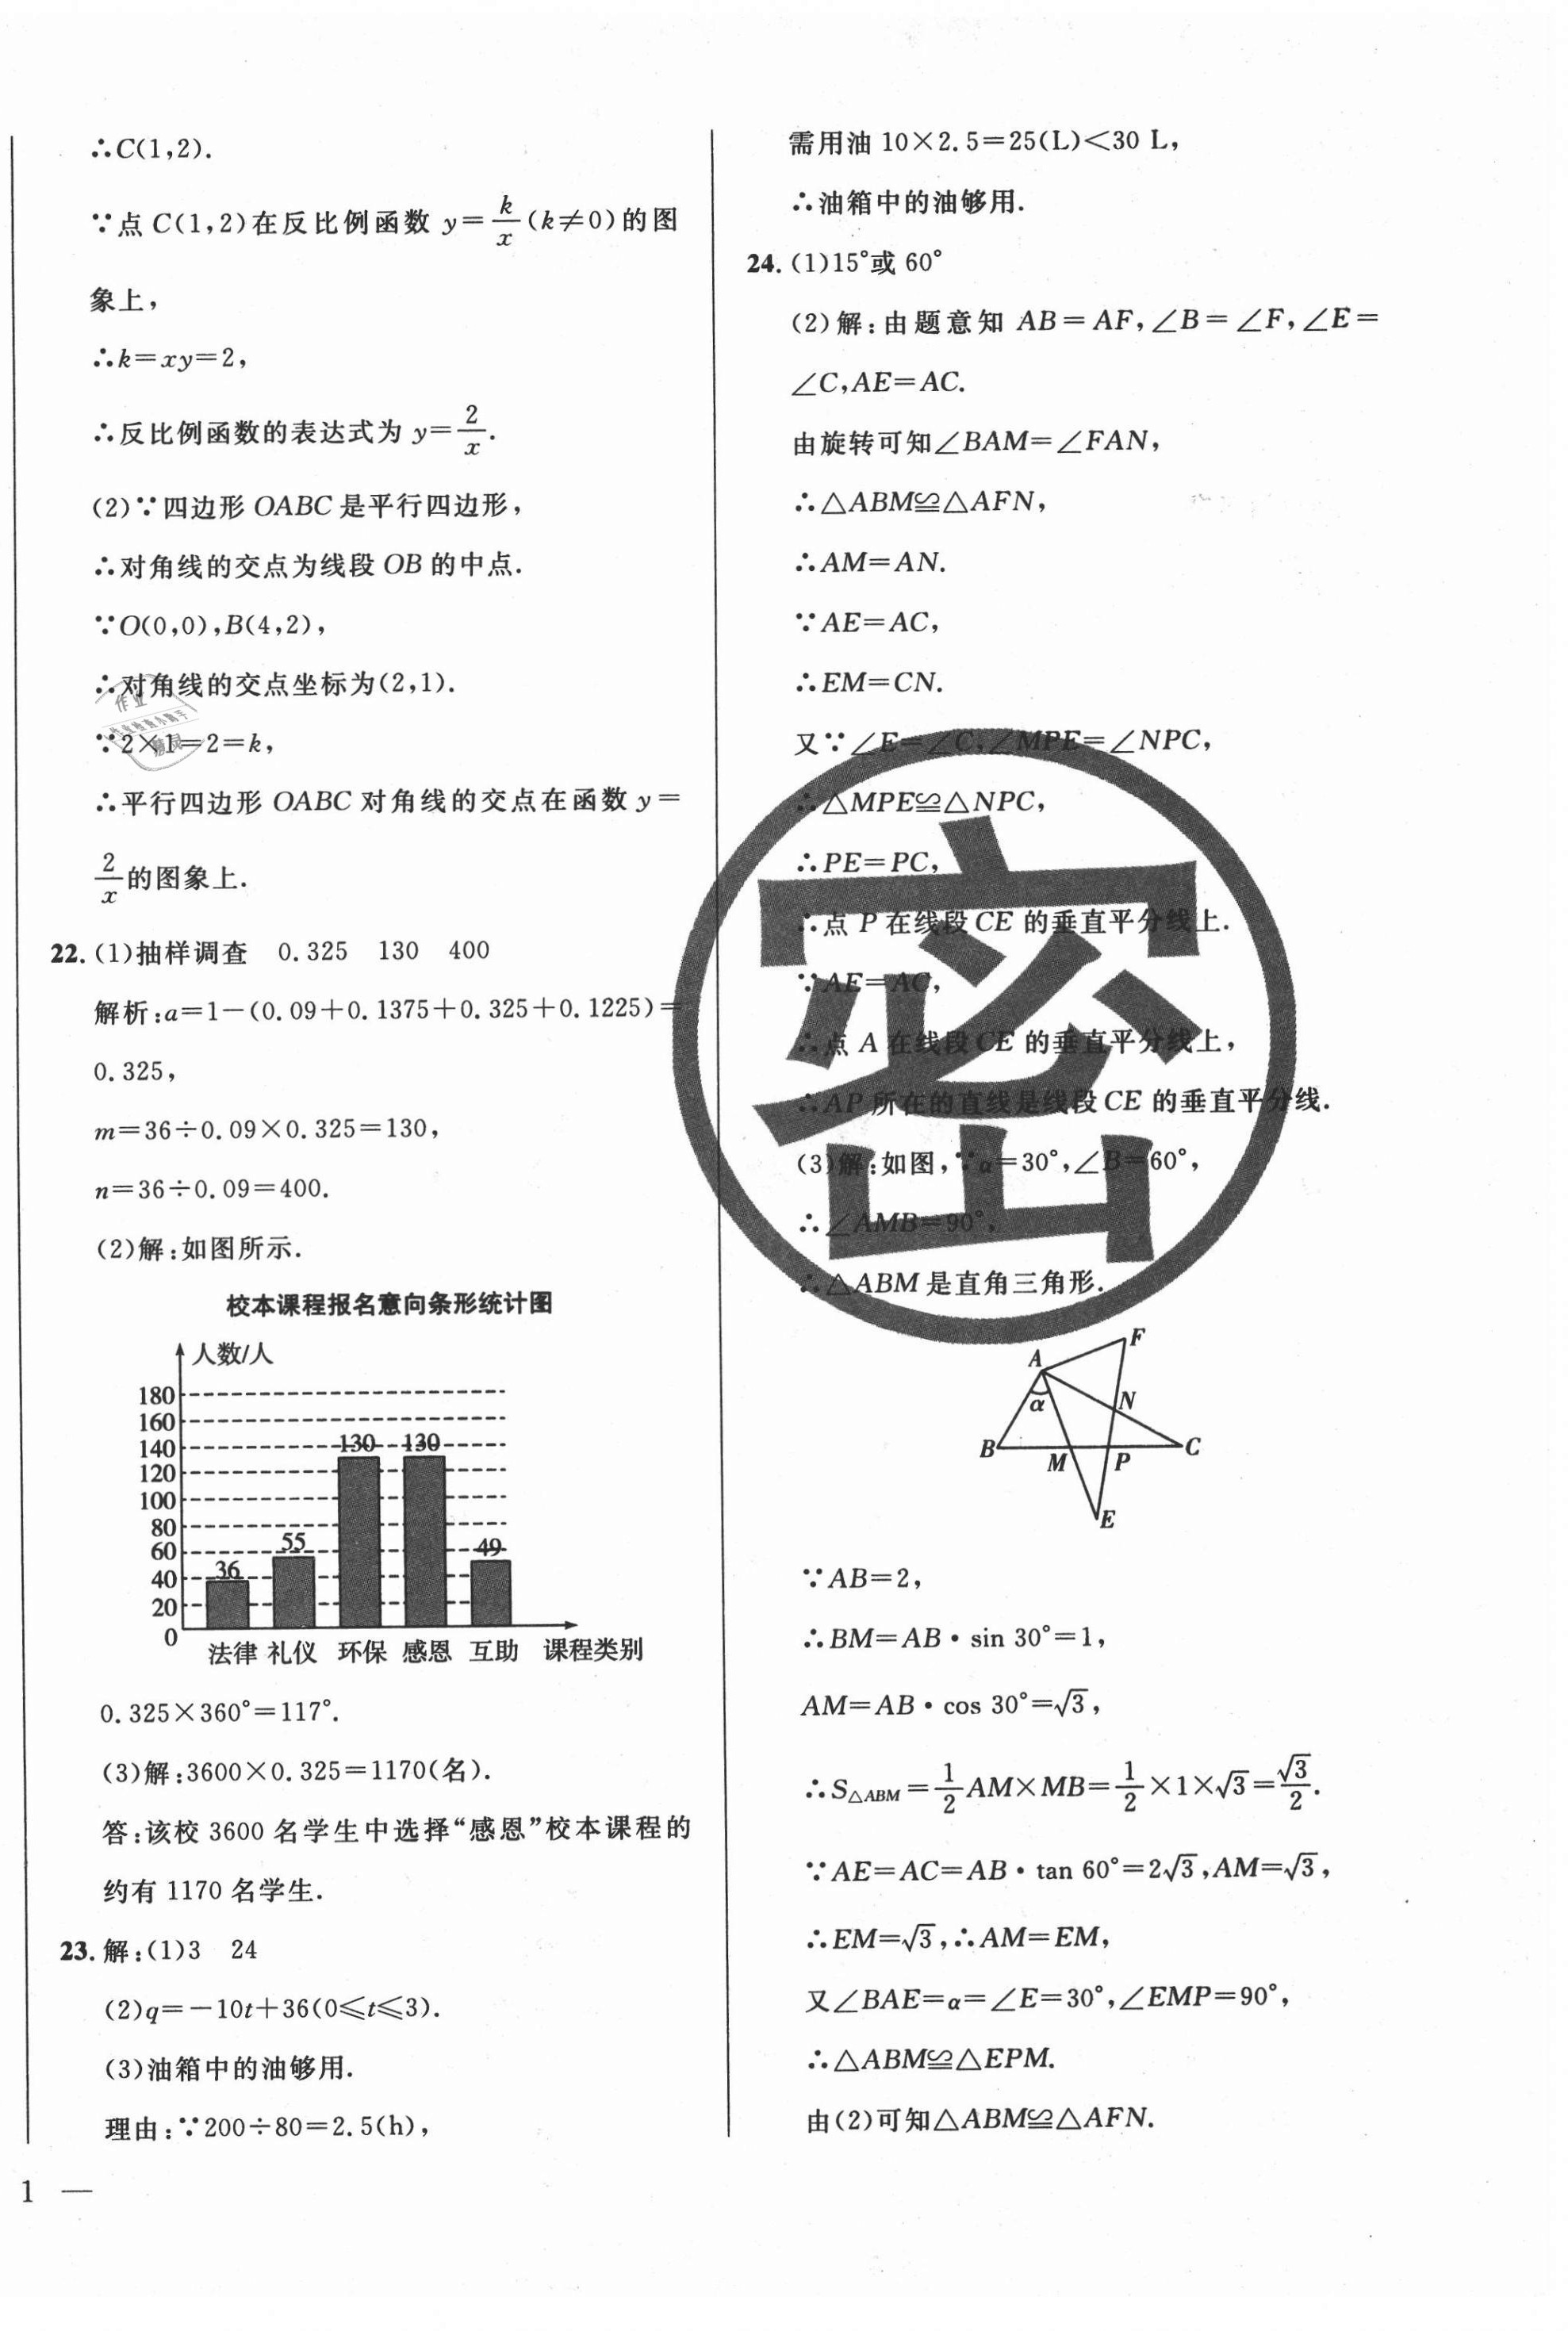 ∴C(1,2).
∵点 C(1,2)在反比例函数 y=k/x(k≠0)的图
象上，
∴k=xy=2,
∴反比例函数的表达式为 y=2/x.
(2)∵四边形 OABC 是平行四边形，
∴对角线的交点为线段 OB 的中点.
∵O(0,0),B(4,2),
∴对角线的交点坐标为(2,1).
∵2×1=2=k,
∴平行四边形 OABC 对角线的交点在函数 y=
2/x的图象上.
22.(1)抽样调查 0.325 130 400
解析:a=1-(0.09+0.1375+0.325+0.1225)=
0.325,
m=36÷0.09×0.325=130,
n=36÷0.09=400.
(2)解:如图所示.
校本课程报名意向条形统计图
人数/人
180
160
140
120
100
80
60
40
20
0
36
55
130
130
49
法律 礼仪 环保 感恩 互助 课程类别
0.325×360°=117°.
(3)解:3600×0.325=1170(名).
答:该校 3600 名学生中选择“感恩”校本课程的
约有 1170 名学生.
23.解:(1)3 24
(2)q=-10t+36(0≤t≤3).
(3)油箱中的油够用.
理由:∵200÷80=2.5(h),
需用油 10×2.5=25(L)<30 L,
∴油箱中的油够用.
24.(1)15°或 60°
(2)解:由题意知 AB=AF,∠B=∠F,∠E=
∠C,AE=AC.
由旋转可知∠BAM=∠FAN,
∴△ABM≌△AFN,
∴AM=AN.
∵AE=AC,
∴EM=CN.
又∵∠E=∠C,∠MPE=∠NPC,
∴△MPE≌△NPC,
∴PE=PC,
∴点 P 在线段 CE 的垂直平分线上.
∵AE=AC,
∴点 A 在线段 CE 的垂直平分线上，
∴AP 所在的直线是线段 CE 的垂直平分线.
(3)解:如图,∵α=30°,∠B=60°,
∴∠AMB=90°,
∴△ABM 是直角三角形.
密
F
A
α
N
B
M
P
C
E
∵AB=2,
∴BM=AB·sin 30°=1,
AM=AB·cos 30°=√3,
∴S△ABM=1/2AM×MB=1/2×1×√3=√3/2.
∵AE=AC=AB·tan 60°=2√3,AM=√3,
∴EM=√3,∴AM=EM,
又∠BAE=α=∠E=30°,∠EMP=90°,
∴△ABM≌△EPM.
由(2)可知△ABM≌△AFN.
1 —